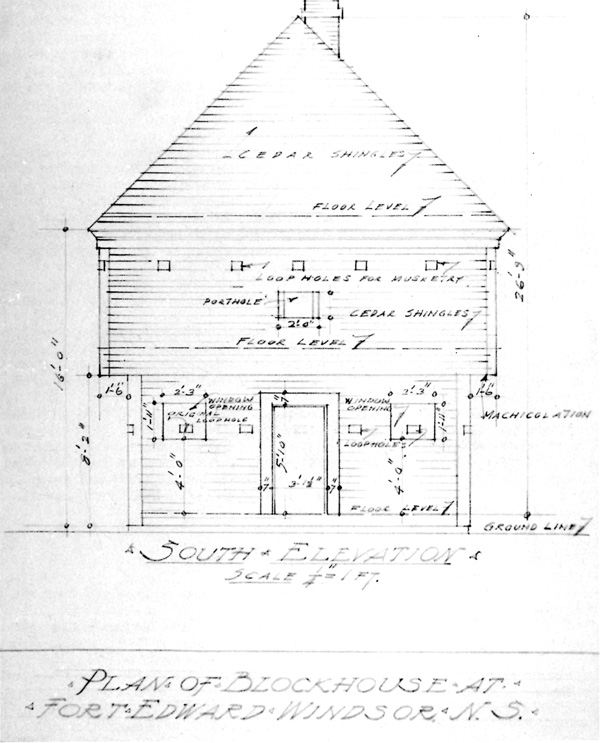 CEDAR SHINGLES
FLOOR LEVEL
LOOP HOLES FOR MUSKETRY
PORTHOLE
CEDAR SHINGLES
2'-0"
FLOOR LEVEL
26'-9"
8'-2"
1'-6"
2'-3"
WINDOW
OPENING
ORIGINAL
LOOPHOLE
1'-11"
4'-0"
7"
5'-10"
7"
3'-1½"
7"
WINDOW
OPENING
2'-3"
1'-11"
LOOPHOLES
4'-0"
1'-6"
MACHICOLATION
FLOOR LEVEL
GROUND LINE
SOUTH ELEVATION
SCALE ¼" = 1 FT.
PLAN OF BLOCKHOUSE AT
FORT EDWARD WINDSOR, N. S.